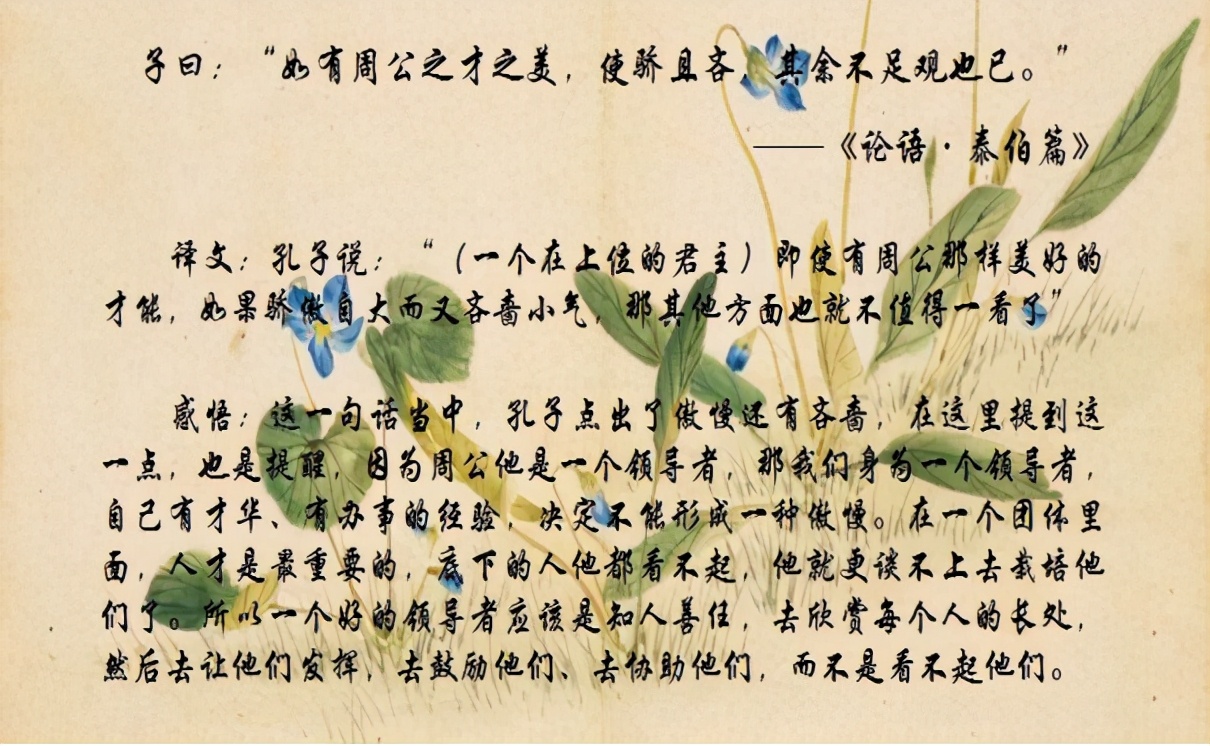 子曰：“如有周公之才之美，使骄且吝，其余不足观也已。”
——《论语·泰伯篇》
译文：孔子说：“（一个在上位的君主）即使有周公那样美好的
才能，如果骄傲自大而又吝啬小气，那其他方面也就不值得一看了”
感悟：这一句话当中，孔子点出了傲慢还有吝啬，在这里提到这
一点，也是提醒，因为周公他是一个领导者，那我们身为一个领导者，
自己有才华、有办事的经验，决定不能形成一种傲慢。在一个团体里
面，人才是最重要的，底下的人他都看不起，他就更谈不上去栽培他
们了。所以一个好的领导者应该是知人善任，去欣赏每个人的长处，
然后去让他们发挥，去鼓励他们、去协助他们，而不是看不起他们。